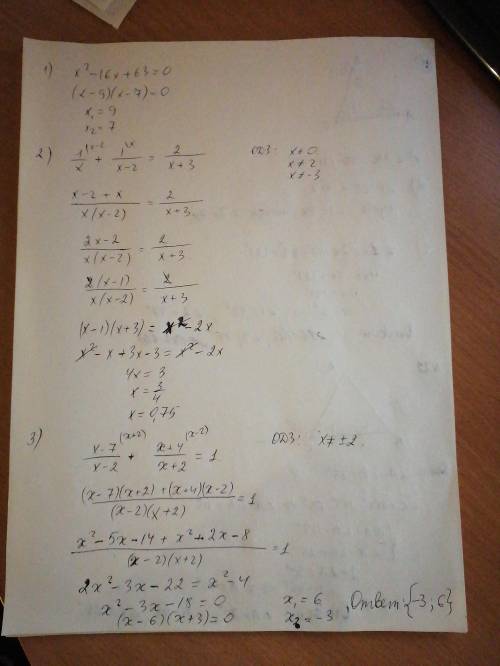 1) x² - 16x + 63 = 0
(x - 9)(x - 7) = 0
x₁ = 9
x₂ = 7
2) 1/x ^(x-2) + 1/(x-2) ^x = 2/(x+3) ОДЗ: x ≠ 0
x ≠ 2
x ≠ -3
(x - 2 + x)/(x(x-2)) = 2/(x+3)
(2x - 2)/(x(x-2)) = 2/(x+3)
2(x-1)/(x(x-2)) = 2/(x+3)
(x-1)(x+3) = x² - 2x
x² - x + 3x - 3 = x² - 2x
4x = 3
x = 3/4
x = 0,75
3) (x-7)/(x-2) ^(x+2) + (x+4)/(x+2) ^(x-2) = 1 ОДЗ: x ≠ ±2
((x-7)(x+2) + (x+4)(x-2))/((x-2)(x+2)) = 1
(x² - 5x - 14 + x² + 2x - 8)/((x-2)(x+2)) = 1
2x² - 3x - 22 = x² - 4
x² - 3x - 18 = 0 x₁ = 6
(x - 6)(x + 3) = 0 x₂ = -3 , Ответ: {-3; 6}